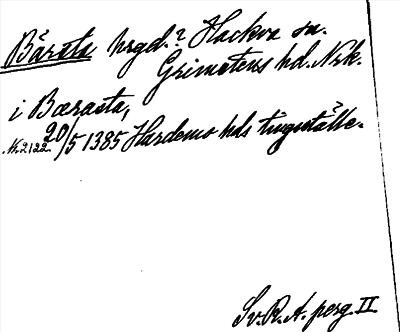 Bärsta hrgd.? Hackva sn.
Grimstens hd. Nrk.
i Bærasta,
N. 2122 20/5 1385 Hardemo hds tingställe.
Sv. R. A. perg. II